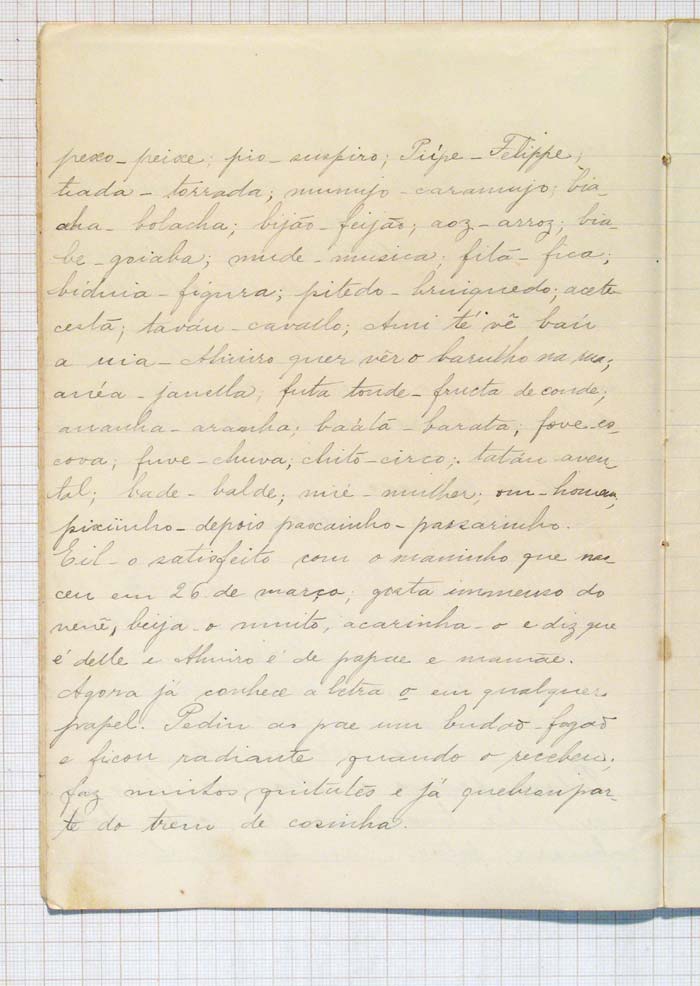 pexo - peixe; pio - suspiro; Piípe - Felippe;
tiada - torrada; mumujo - caramujo; bia-
aha - bolacha; bijão - feijão; aoz - arroz; bia-
be - goiaba; mude - musica; fitá - fica;
biduia - figura; pitedo - bruiquedo; acete
cestá; taván - cavallo; Ami té vê baín
a uia - Almiro quer vêr o barulho na rua;
anéa - janella; futa tonde - fructa de conde;
ananha - aranha; baátá - barata; fove - es-
cova; fuve - chuva; chito - circo; tatán aven-
tal; bade - balde; mié - mulher; om - homem;
pixiinho - depois pascainho - passarinho.
Eil-o satisfeito com o maninho que nas-
ceu em 26 de março; gosta immenso do
nenê, beija-o muito, acarinha-o e diz que
é delle e Almiro é de papae e mamãe.
Agora já conhece a letra o em qualquer
papel. Pediu ao pae um budão - fogão
e ficou radiante quando o recebeu;
faz muitos quitutes e já quebrou par-
te do trem de cosinha.